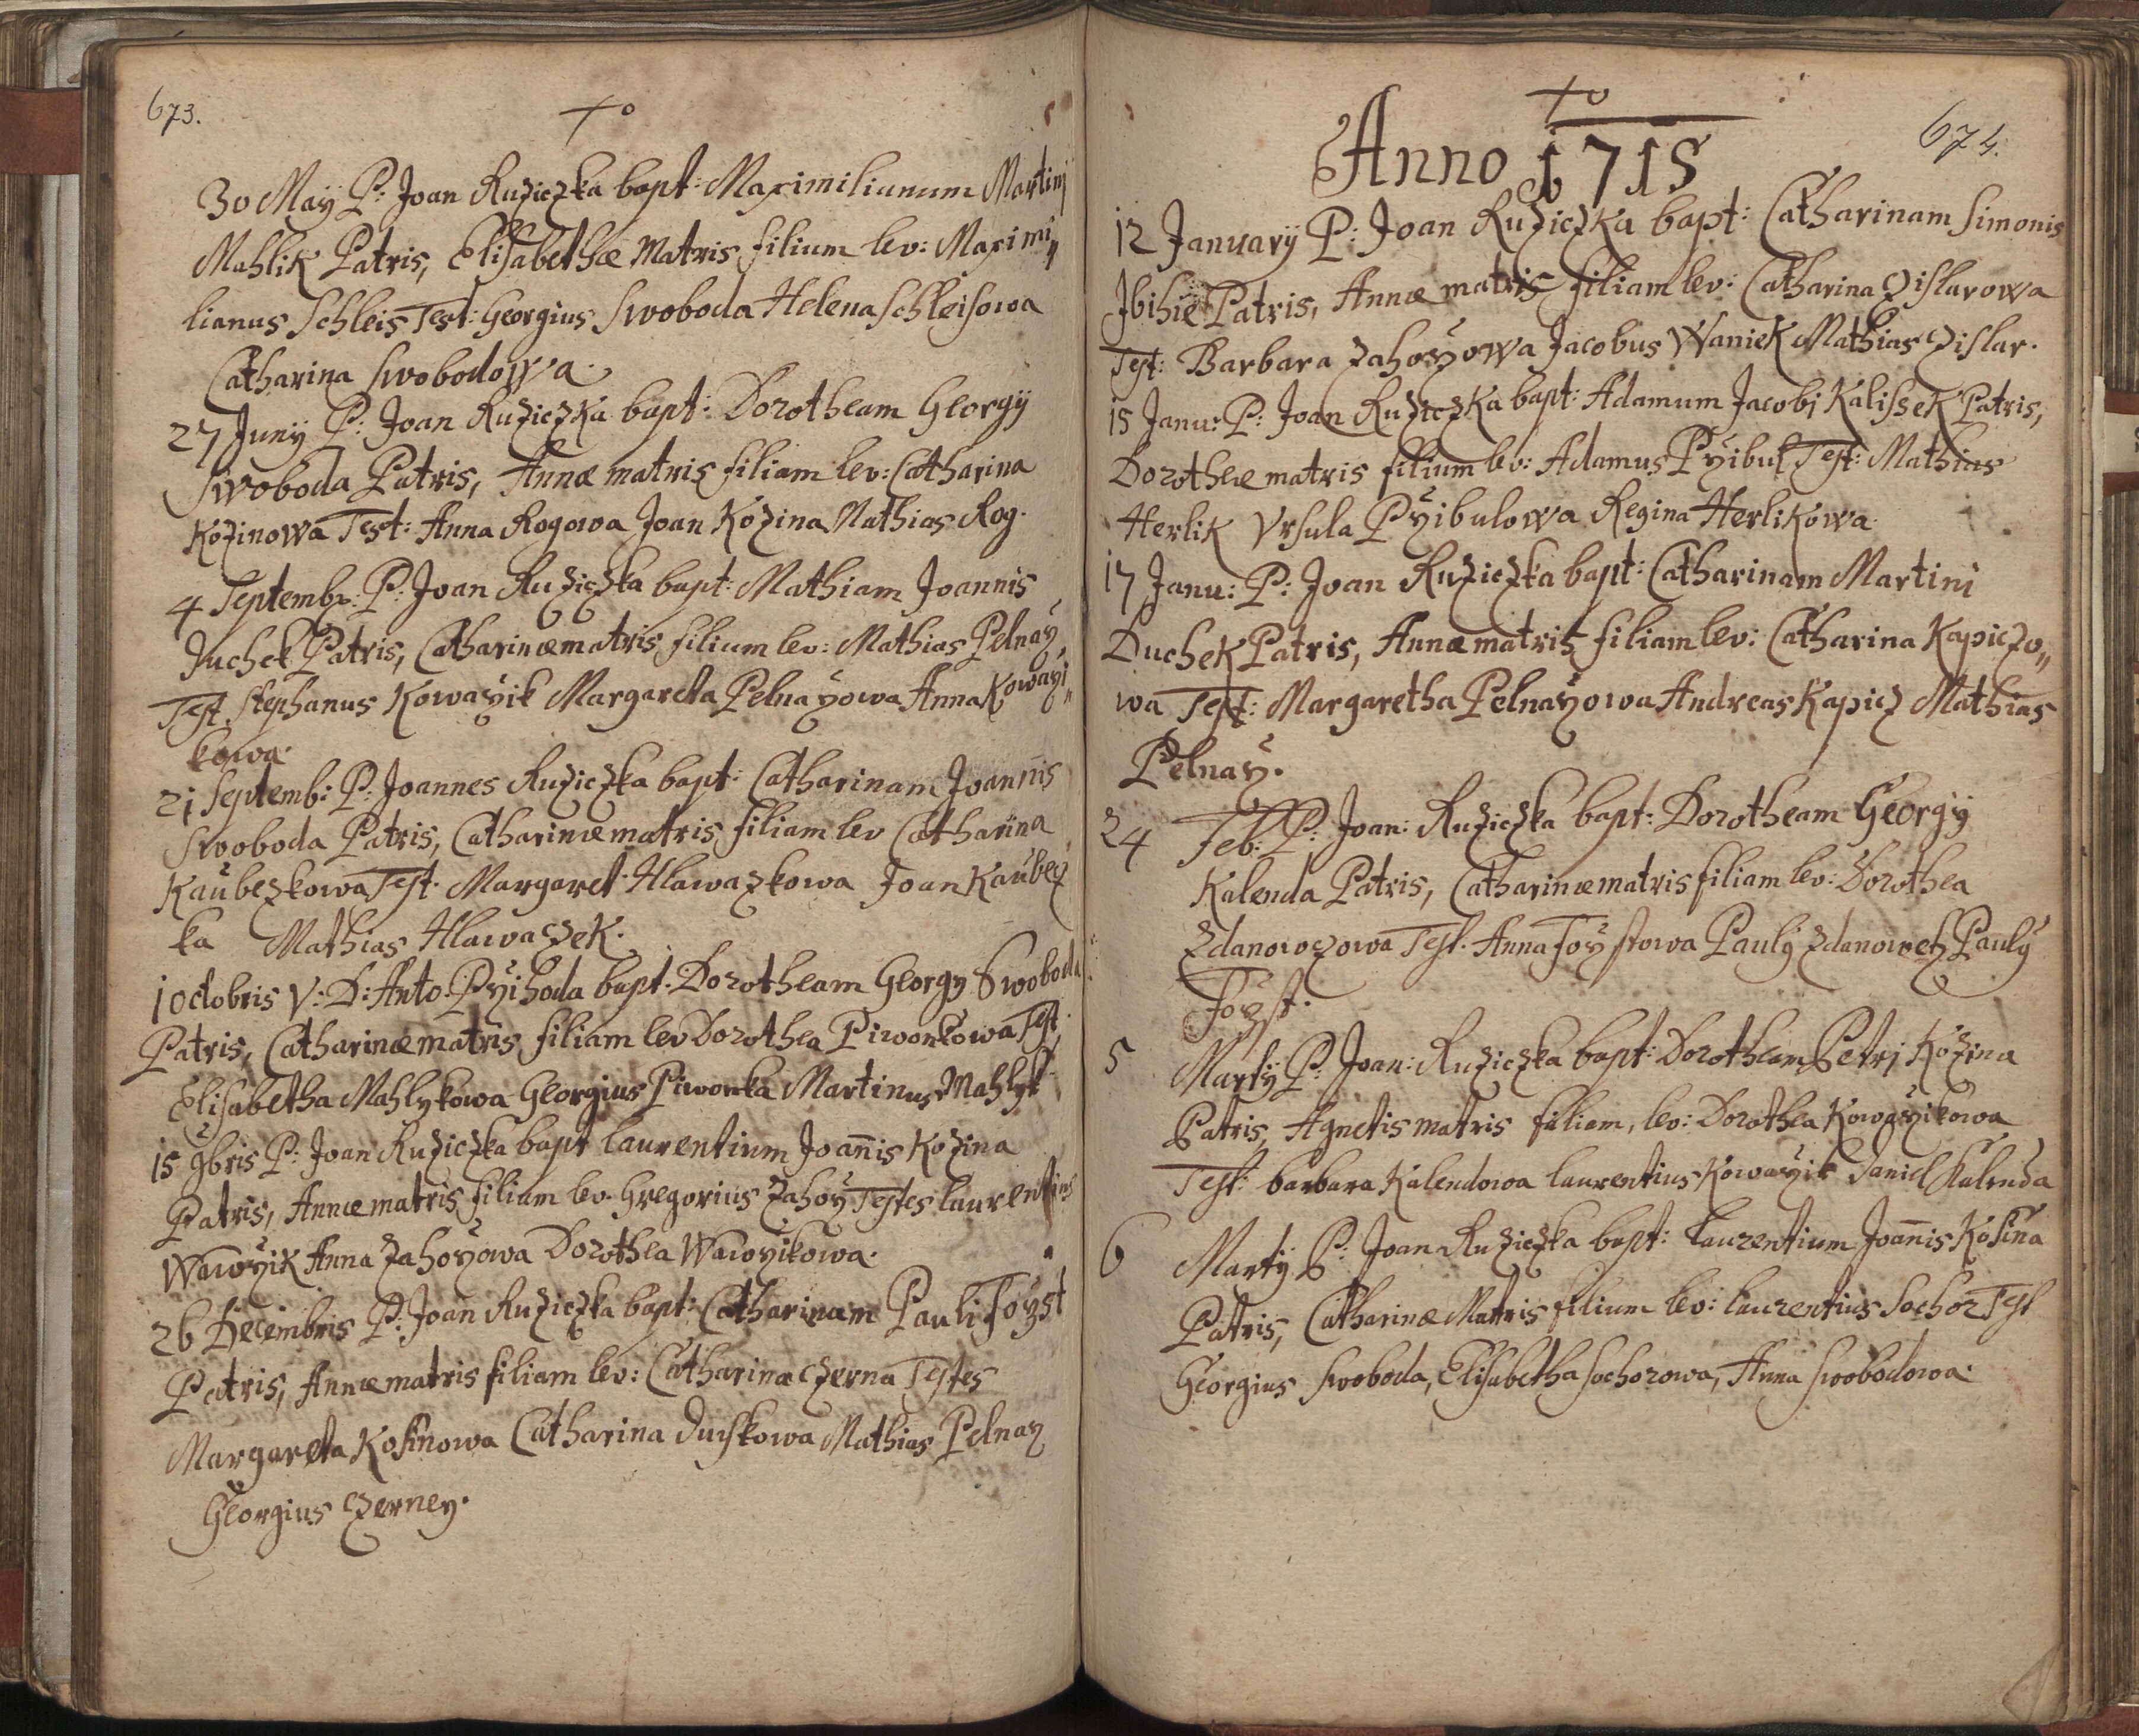 673.
30 Maÿ P: Joan Ruziczka bapt: Maximilianum Martini
Mahlik Patris, Elisabethæ Matris filium lev: Maximi„
lianus Schleis Test: Georgius Swoboda Helena Schleisowa
Catharina Swobodowa.
27 Junÿ P: Joan Ruziczka bapt: Dorotheam Georgÿ
Swoboda Patris, Annæ matris filiam lev: Catharina
Kozinowa Test: Anna Rogowa Joan Kozina Mathias Rog.
4 Septembr: P: Joan Ruziczka bapt: Mathiam Joannis
Duchek Patris, Catharinæ matris filium lev: Mathias Pelnaÿ,
Test Stephanus Kowaÿik Margareta Pelnaÿowa Anna Kowaÿi„
kowa.
21 Septemb: P: Joannes Ruziczka bapt: Catharinam Joannis
Swoboda Patris, Catharinæ matris filiam lev Catharina
Kaubeczkowa Test. Margaret. Hlawaczkowa Joan Kaubecz
ka Mathias Hlawaczek.
1 Octobris V: D: Anto. Pÿihoda bapt. Dorotheam Georgÿ Swoboda
Patris, Catharinæ matris filiam lev Dorothea Piwonkowa Test.
Elisabetha Mahlykowa Georgius Piwonka Martinus Mahlyk
15 9bris P: Joan Ruziczka bapt laurentium Joannis Kozina
Patris, Annæ matris filium lev. Gregorius Zahoÿ Testes laurentius
Wawÿik Anna Zahoÿowa Dorothea Wawÿikowa.
26 Decembris P: Joan Ruziczka bapt: Catharinam Pauli Foÿst
Patris, Annæ matris filiam lev: Catharina Czerna Testes
Margareta Kosinowa Catharina Duskowa Mathias Pelnaÿ
Georgius Czerney.
674.
Anno 1715
12 Januarÿ P: Joan Ruziczka bapt: Catharinam Simonis
Patris, Annæ matris filiam lev: Catharina Czislarowa
Test: Barbara Zahoÿowa Jacobus Waniek Mathias Czislar.
15 Janu: P: Joan Ruziczka bapt: Adamum Jacobi Kalissek Patris,
Dorotheæ matris filium lev: Adamus Pÿibul Test: Mathias
Herlik Vrsula Pÿibulowa Regina Herlikowa.
17 Janu: P: Joan Ruziczka bapt: Catharinam Martini
Duchek Patris, Annæ matris filiam lev: Catharina Kapiczo„
wa Test: Margaretha Pelnaÿowa Andreas Kapicz Mathias
Pelnaÿ.
24 Feb: P: Joan: Ruziczka bapt: Dorotheam Georgÿ
Kalenda Patris, Catharinæ matris filiam lev: Dorothea
Zdanowczowa Test. Anna Foÿstowa Paulÿ Zdanowetz Paulÿ
Foÿst.
5 Martÿ P: Joan: Ruziczka bapt: Dorotheam Petri Kozina
Patris, Agnetis matris filiam, lev: Dorothea Kowaÿikowa
Test: barbara Kalendowa laurentius Kowaÿik Daniel Kalenda
6 Martÿ P: Joan Ruziczka bapt: Laurentium Joannis Kosina
Patris, Catharinæ Matris filium lev: laurentius Sochor Test
Georgius Swoboda, Elisabetha Sochorowa, Anna Swobodowa.